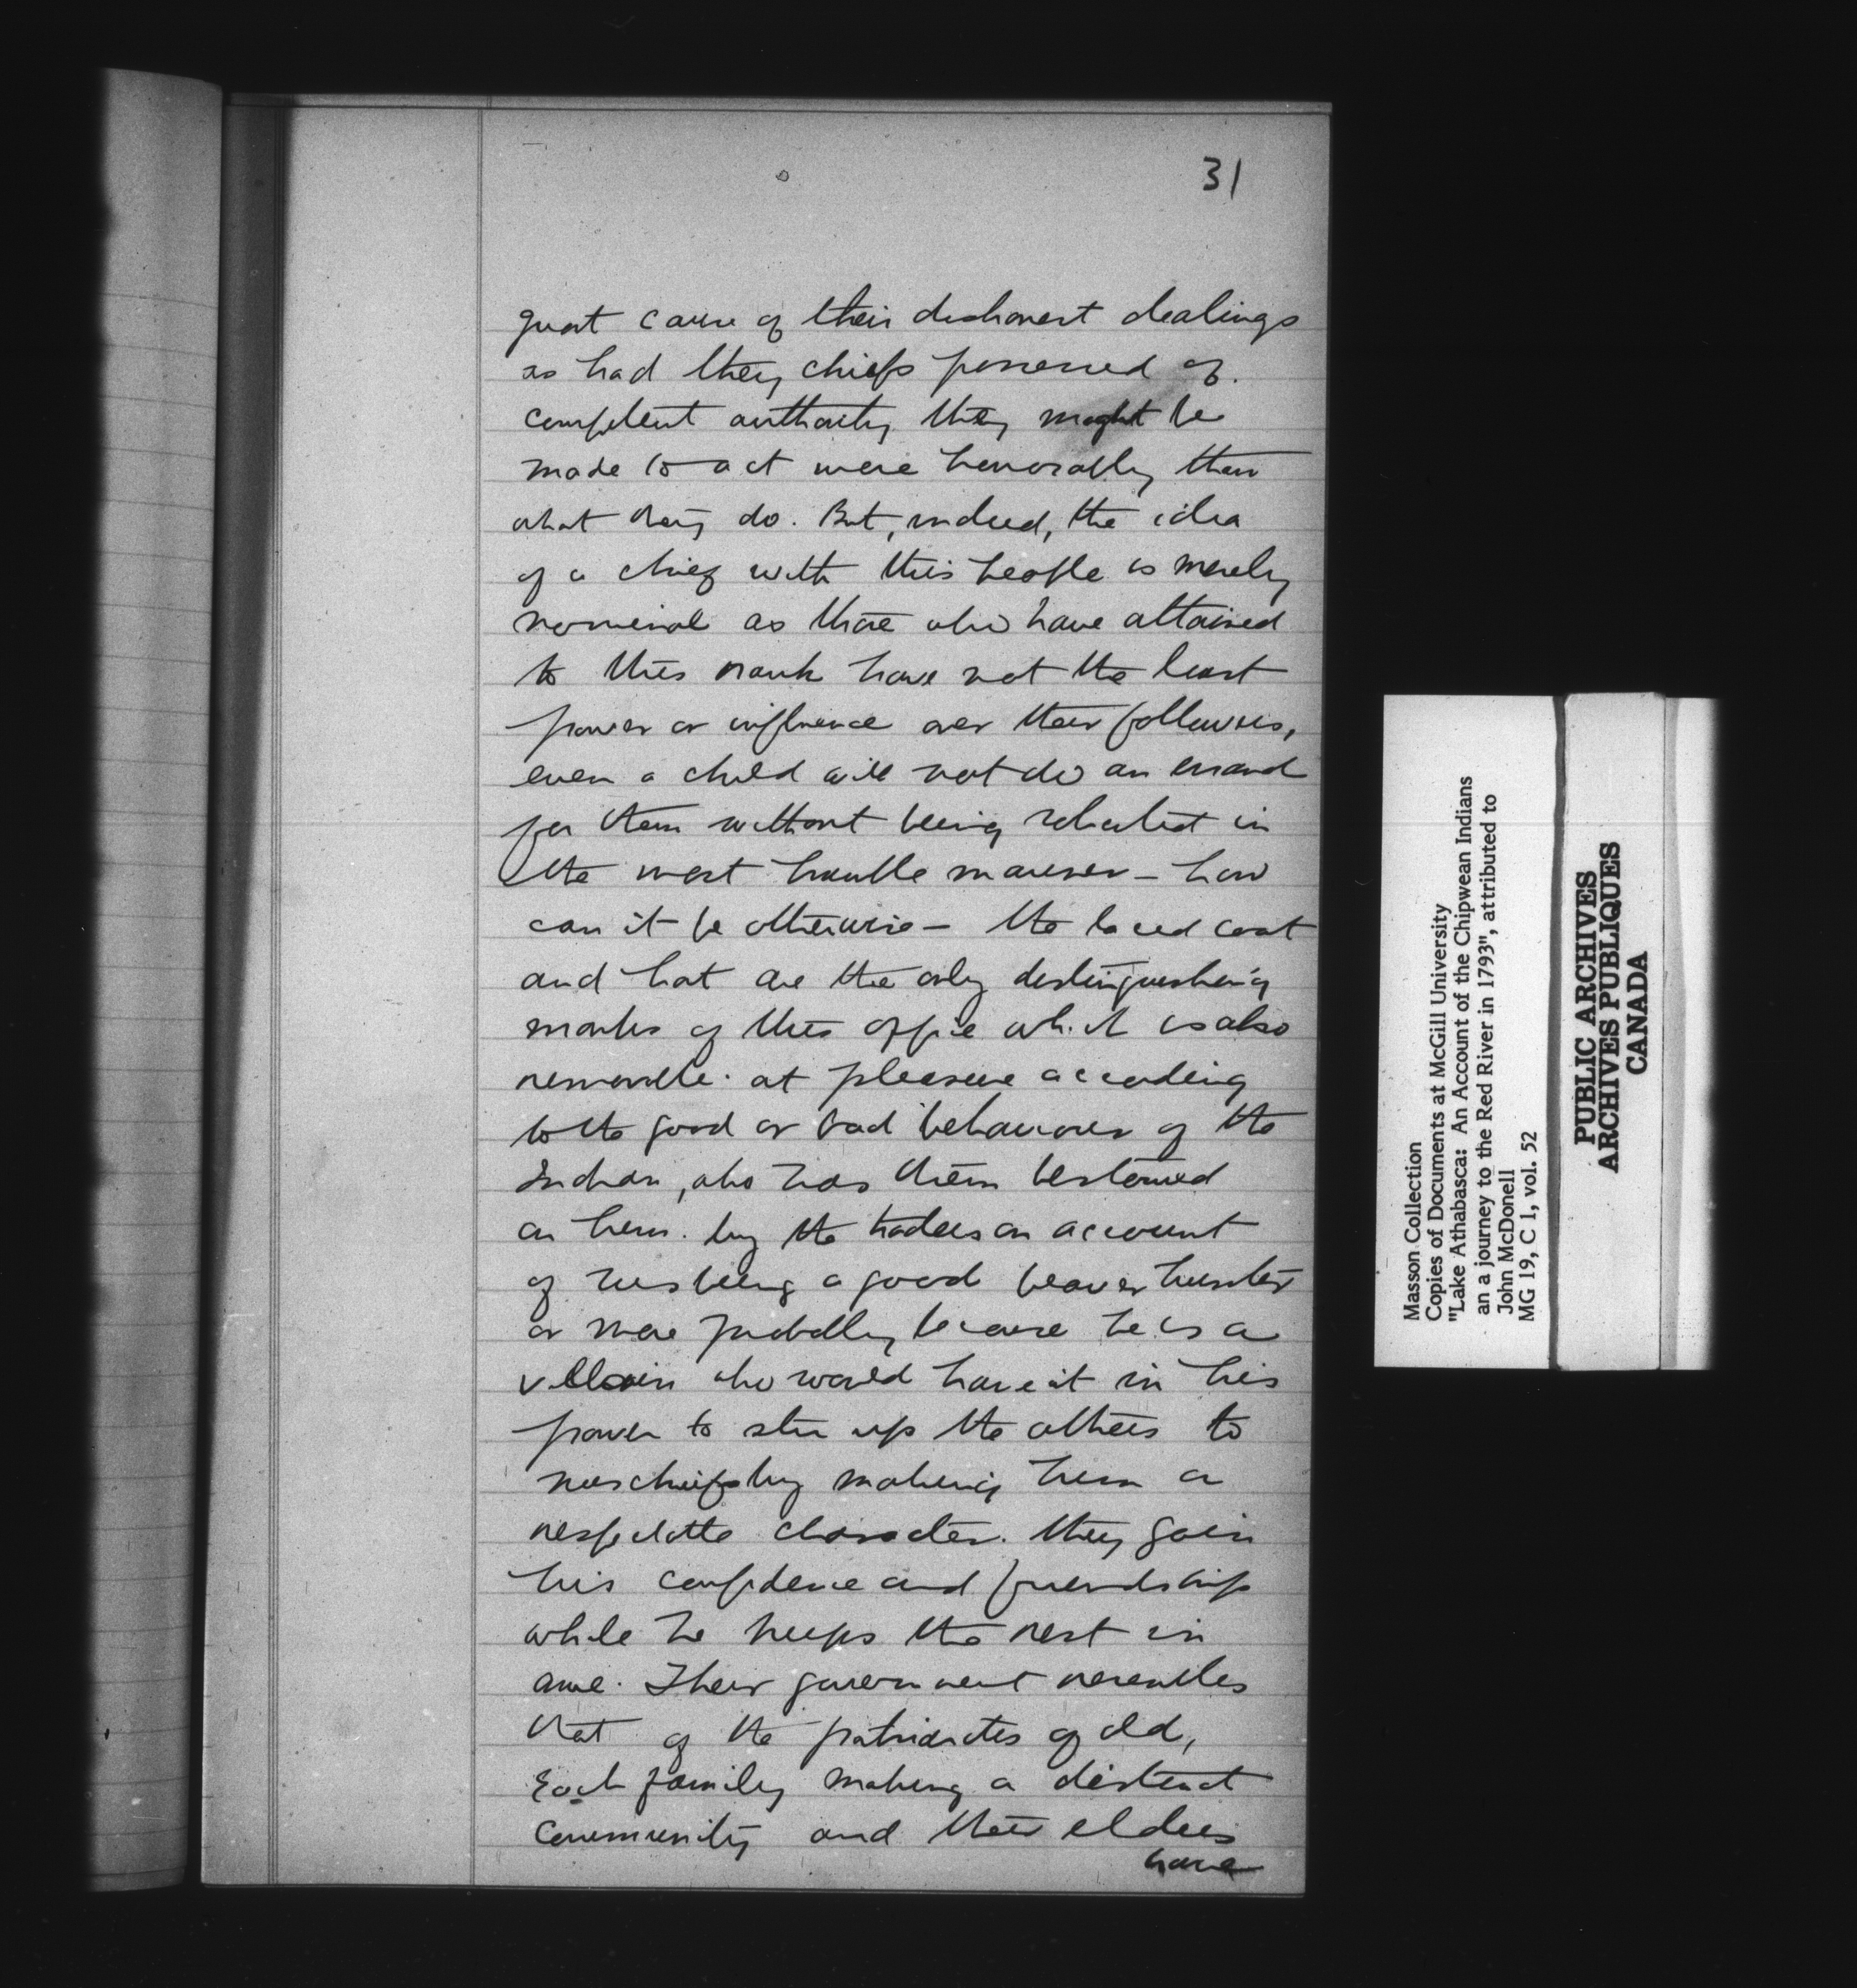 31
great cause of their dishonest dealings
as had they chiefs possessed of
competent authority they might be
made to act more honorably than
what they do. But, indeed, the idea
of a chief with this people is merely
nominal as those who have attained
to this rank have not the least
power or influence over their followers,
even a child will not do an errand
for them without being solicited in
the most humble manner – how
can it be otherwise – the laced coat
and hat are the only distinguishing
marks of this office which is also
removable at pleasure according
to the good or bad behaviour of the
Indian, who has them bestowed
on him by the traders on account
of his being a good beaver hunter
or more probably because he is a
villain who would have it in his
power to stir up the others to
mischief by making him a
respectable character. they gain
his confidence and friendship
while he keeps the rest in
awe. Their government resembles
that of the patriarchs of old,
Each family making a distinct
community and their elders
have
Masson Collection
Copies of Documents at McGill University
"Lake Athabasca: An Account of the Chipwean Indians
an a journey to the Red River in 1793", attributed to
John McDonell
MG 19, C 1, vol. 52
PUBLIC ARCHIVES
ARCHIVES PUBLIQUES
CANADA